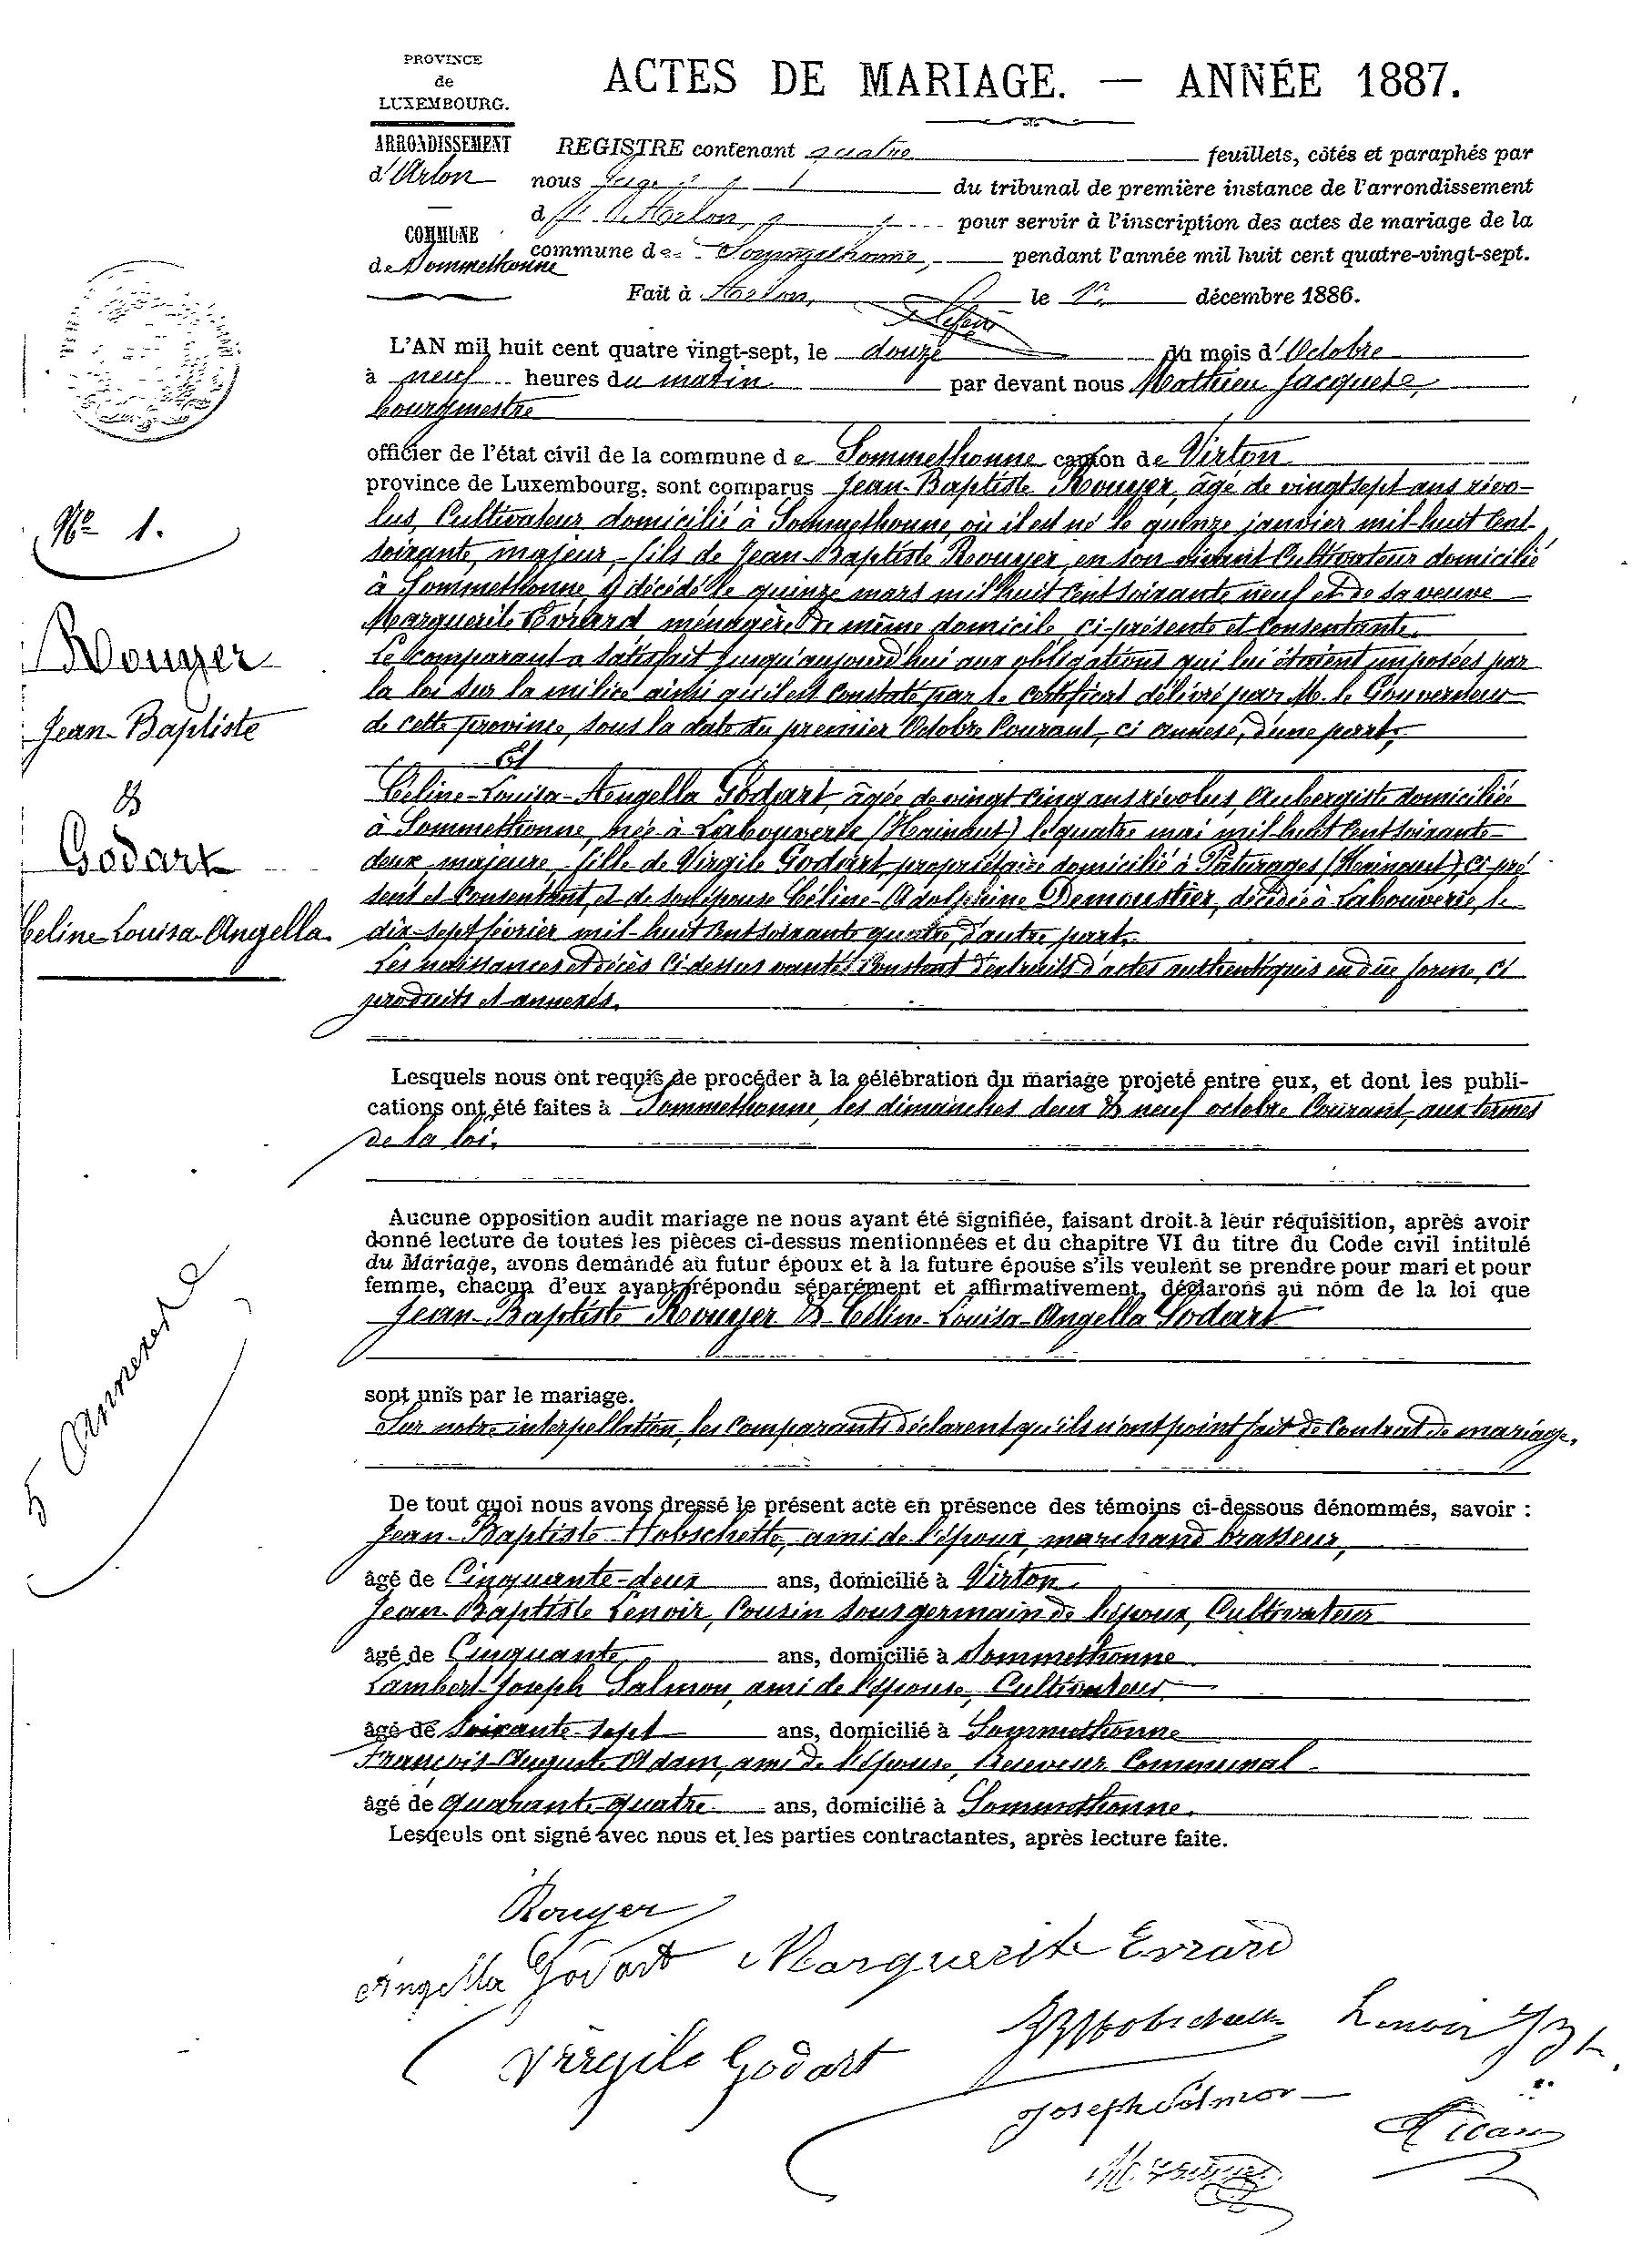 PROVINCE
de
LUXEMBOURG.
ACTES DE MARIAGE. — ANNÉE 1887.
ARRONDISSEMENT
d'Arlon
COMMUNE
de Sommethonne
REGISTRE contenant quatre feuillets, côtés et paraphés par
nous Juge du tribunal de première instance de l'arrondissement
d Arlon, pour servir à l'inscription des actes de mariage de la
commune de Sommethonne, pendant l'année mil huit cent quatre-vingt-sept.
Fait à Arlon, le 1er décembre 1886.
L'AN mil huit cent quatre vingt-sept, le douze du mois d'Octobre
à neuf heures du matin par devant nous Mathieu Jacques,
bourgmestre
officier de l'état civil de la commune de Sommethonne canton de Virton
province de Luxembourg, sont comparus Jean-Baptiste Rouyer, âgé de vingt sept ans révo-
lus, Cultivateur domicilié à Sommethonne, où il est né le quinze janvier mil-huit Cent-
soixante, majeur, fils de Jean-Baptiste Rouyer, en son vivant Cultivateur domicilié
à Sommethonne, y décédé le quinze mars mil huit Cent soixante neuf et de sa veuve
Marguerite Evrard ménagère de même domicile, ci-présente et Consentante.
Le Comparant a satisfait jusqu'aujourd'hui aux obligations qui lui étaient imposées par
la loi sur la milice ainsi qu'il est Constaté par le Certificat délivré par M. le Gouverneur
de cette province, sous la date du premier Octobre Courant, ci annexé, d'une part,
Et
Céline-Louisa-Angella Godart, âgée de vingt Cinq ans révolus, Aubergiste domiciliée
à Sommethonne, née à Labouverie (Hainaut) le quatre mai mil-huit Cent soixante-
deux, majeure, fille de Virgile Godart, propriétaire domicilié à Pâturages (Hainaut), ci-pré
sent et Consentant, et de son épouse Céline-Adolphine Demoustier, décédée à Labouverie, le
dix-sept février mil-huit Cent soixante quatre, d'autre part.
Les naissances et décès Ci-dessus vantés Constent d'extraits d'actes authentiques en dûe forme, ci
produits et annexés.
No 1.
Rouyer
Jean-Baptiste
&
Godart
Céline-Louisa-Angella.
Lesquels nous ont requis de procéder à la célébration du mariage projeté entre eux, et dont les publi-
cations ont été faites à Sommethonne, les dimanches deux & neuf octobre Courant, aux termes
de la loi.
Aucune opposition audit mariage ne nous ayant été signifiée, faisant droit à leur réquisition, après avoir
donné lecture de toutes les pièces ci-dessus mentionnées et du chapitre VI du titre du Code civil intitulé
du Mariage, avons demandé au futur époux et à la future épouse s'ils veulent se prendre pour mari et pour
femme, chacun d'eux ayant répondu séparément et affirmativement, déclarons au nom de la loi que
Jean-Baptiste Rouyer & Céline-Louisa-Angella Godart
5 Annexes
sont unis par le mariage.
Sur notre interpellation, les Comparants déclarent qu'ils n'ont point fait de Contrat de mariage.
De tout quoi nous avons dressé le présent acte en présence des témoins ci-dessous dénommés, savoir :
Jean-Baptiste Hobschette, ami de l'époux, marchand brasseur,
âgé de Cinquante-deux ans, domicilié à Virton.
Jean-Baptiste Lenoir, Cousin sous germain de l'époux, Cultivateur
âgé de Cinquante ans, domicilié à Sommethonne
Lambert-Joseph Salmon, ami de l'épouse, Cultivateur
âgé de Soixante-sept ans, domicilié à Sommethonne
François-Auguste Adam, ami de l'épouse, Receveur Communal
âgé de quarante-quatre ans, domicilié à Sommethonne.
Lesqeuls ont signé avec nous et les parties contractantes, après lecture faite.
Rouyer
Angella Godart Marguerite Evrard
Virgile Godart JBHobschette Lenoir JB
Joseph Salmon